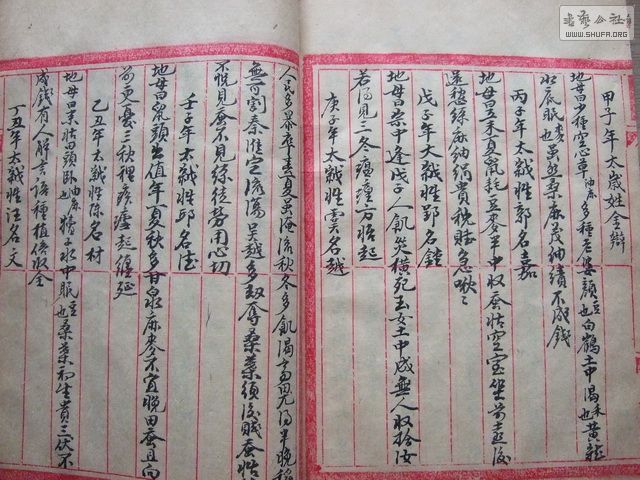 甲子年太歲姓金辯
地母曰少種空心草油麻多種老婆顏豆也白鶴土中渴禾也黃龍
水底眠麥也虽然桑麻茂紬績不成錢
丙子年太歲姓郭名嘉
地母曰禾夏鼠耗豆麥半中收蚕怙空室坐前走後
還愁絲麻紬絹貴稅急啾々
戊子年太歲姓郢名鏜
地母曰中逢戊子人飢災橫死玉女土中成無人收拾汝
若得見三冬瘟瘴方始起
庚子年太歲姓雲名越
人民多暴卒春夏虽淹流秋冬多飢渴高田得半晚稻
無可割秦淮空流蕩吳越多劫奪桑葉須後賤蚕怙
不悅見蚕不見絲徒勞用心切
壬子年太歲姓邱名德
地母曰鼠頭出值年夏秋多甘泉麻麥不宜晚田蚕且向
前更憂三秋裡瘧起纏延
乙丑年太歲姓陳名材
地母曰臥油麻也水中眠豆也桑葉初生貴三伏不
成錢有人解言語種植倍收全
丁丑年太歲姓汪名文
書藝公社
WWW.SHUFA.ORG